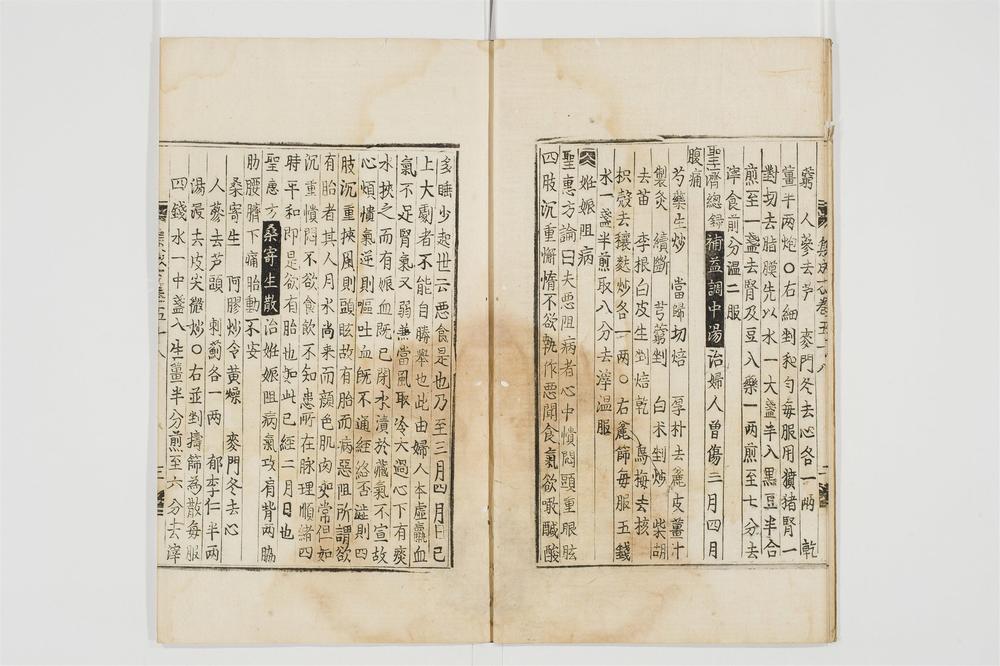 芎 人參去芦 麥門冬去心各一兩 乾
薑半兩炮○右細剉和勻每服用豶猪腎一
對切去脂膜先以水一大盞半入黑豆半合
煎至一盞去腎及豆入藥一兩煎至七分去
滓食前分溫二服
聖濟總錄補益調中湯治婦人曾傷三月四月
腹痛
芍藥生炒 當歸切焙 厚朴去麄皮薑汁
製灸 續斷 芎藭剉 白朮剉炒 柴胡
去苗 李根白皮生剉焙乾 烏梅去核
枳殼去穰麩炒各一兩○右麄篩每服五錢
水一盞半煎取八分去滓溫服
姙娠阻病
聖惠方論曰夫惡阻病者心中憒悶頭重眼眩
四肢沉重懈惰不欲執作惡聞食氣欲噉醎酸
多睡少起世云惡食是也乃至三月四月日已
上大劇者不能自勝擧也此由婦人本虛羸血
氣不足腎氣又弱兼當風取冷大過心下有痰
水挾之而有娠血旣已閉水漬於藏氣不宣故
心煩憒氣逆則嘔吐血旣不通經絡否澁則四
肢沉重挾風則頭眩故有胎而病惡阻所謂欲
有胎者其人月水尚来而顏色肌肉如常但如
沉重憒悶不欲食飲不知患所在脉理順緒四
時平和即是欲有胎也如此已經二月日也
聖惠方桑寄生散治姙娠阻病氣攻肩背兩脇
肋腰臍下痛胎動不安
桑寄生 阿膠炒令黄燥 麥門冬去心
人參去芦頭 刺薊各一兩 郁李仁半兩
湯浸去皮尖微炒○右並剉擣篩為散每服
四錢水一中盞入生薑半分煎至六分去滓